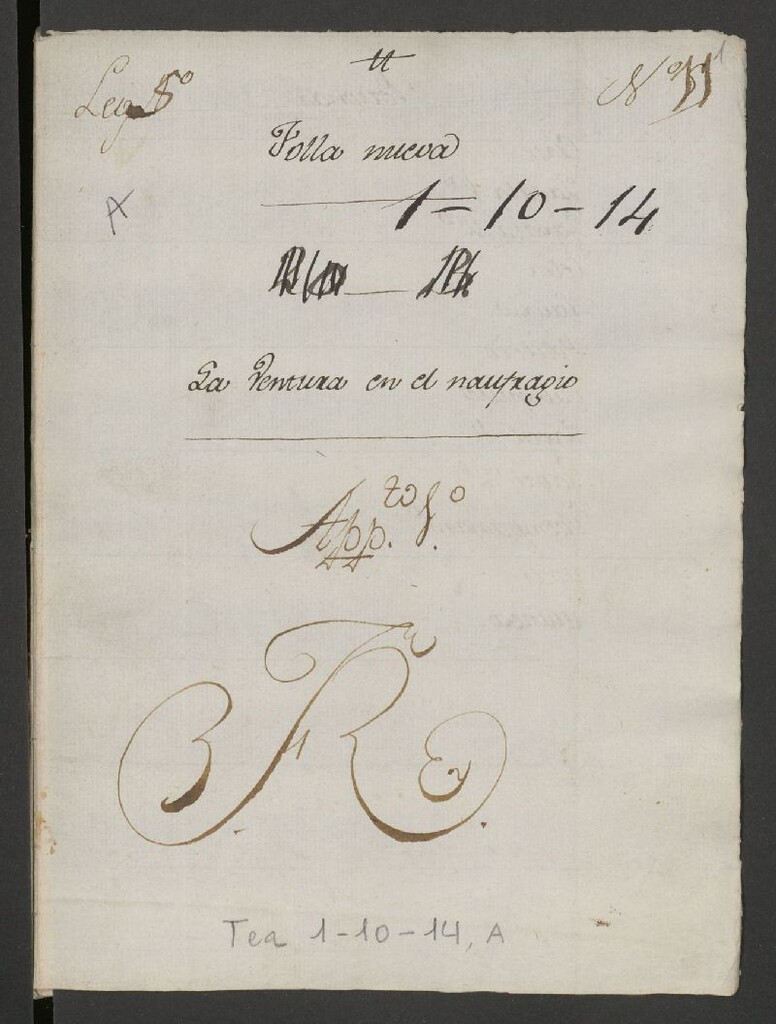 Leg 5º
Nº 11
1
Folla nueva
A
1-10-14
La Ventura en el naufragio
App.to
Tea 1-10-14, A